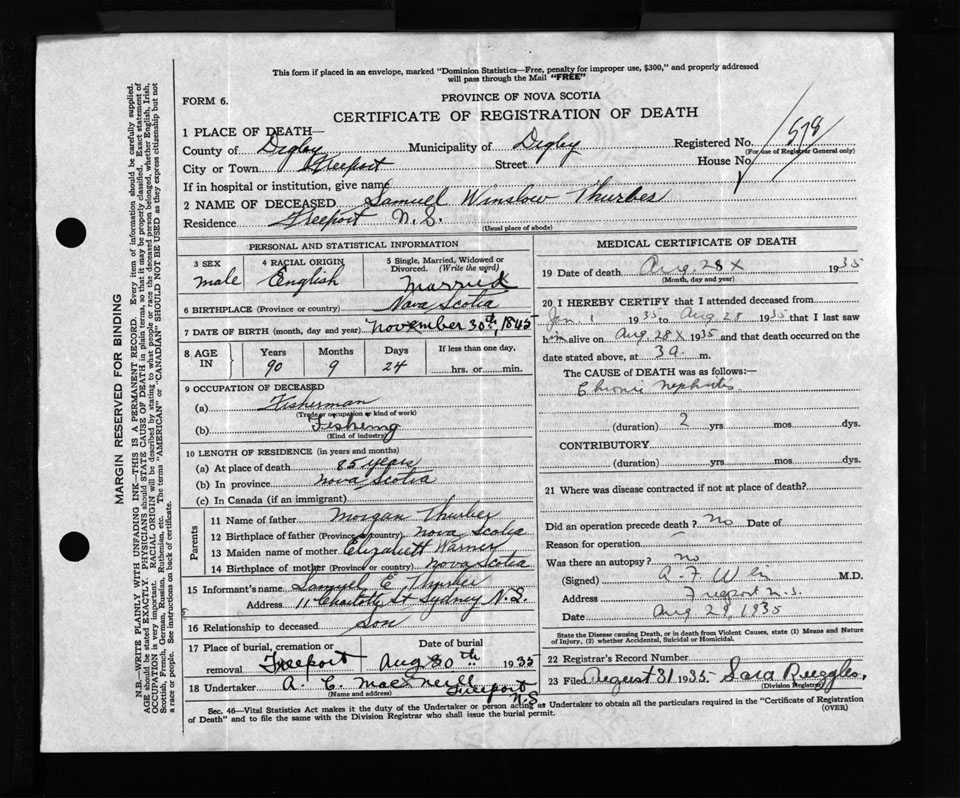 This form if placed in an envelope, marked "Dominion Statistics—Free, penalty for improper use, $300," and properly addressed
will pass through the Mail "FREE"
FORM 6.
PROVINCE OF NOVA SCOTIA
CERTIFICATE OF REGISTRATION OF DEATH
1 PLACE OF DEATH—
County of Digby Municipality of Digby Registered No. 578
(For use of Registrar General only)
City or Town Freeport Street House No.
If in hospital or institution, give name
2 NAME OF DECEASED Samuel Winslow Thurber
Residence Freeport N.S.
(Usual place of abode)
PERSONAL AND STATISTICAL INFORMATION
3 SEX 4 RACIAL ORIGIN 5 Single, Married, Widowed or
Divorced. (Write the word)
male English Married
6 BIRTHPLACE (Province or country) Nova Scotia
7 DATE OF BIRTH (month, day and year) November 30th, 1845
8 AGE IN Years Months Days If less than one day,
90 9 24 hrs. or min.
9 OCCUPATION OF DECEASED
(a) Fisherman
(Trade or occupation or kind of work)
(b) Fishing
(Kind of industry)
10 LENGTH OF RESIDENCE (in years and months)
(a) At place of death 85 years
(b) In province Nova Scotia
(c) In Canada (if an immigrant)
Parents
11 Name of father Morgan Thurber
12 Birthplace of father (Province or country) Nova Scotia
13 Maiden name of mother Elizabett Warner
14 Birthplace of mother (Province or country) Nova Scotia
15 Informant's name Samuel E Thurber
Address 11 Charlotte St Sydney N.S.
16 Relationship to deceased Son
17 Place of burial, cremation or removal Date of burial
Freeport Aug 30th 1935
18 Undertaker A. C. MacNeill Freeport N.S
(Name and address)
MEDICAL CERTIFICATE OF DEATH
19 Date of death Aug. 28 x 1935
(Month, day and year)
20 I HEREBY CERTIFY that I attended deceased from
Jan. 1 1935 to Aug 28 1935 that I last saw
him alive on Aug. 28 x 1935 and that death occurred on the
date stated above, at 3 a. m.
The CAUSE of DEATH was as follows:—
Chronic nephritis
(duration) 2 yrs. mos. dys.
CONTRIBUTORY
(duration) yrs. mos. dys.
21 Where was disease contracted if not at place of death?
Did an operation precede death? no Date of
Reason for operation
Was there an autopsy? no
(Signed) A. F. M.D.
Address Freeport N.S.
Date Aug 29, 1935
State the Disease causing Death, or in death from Violent Causes, state (1) Means and Nature
of Injury, (2) whether Accidental, Suicidal or Homicidal.
22 Registrar's Record Number
23 Filed August 31 1935 Sara Ruggles.
(Division Registrar)
Sec. 46—Vital Statistics Act makes it the duty of the Undertaker or person acting as Undertaker to obtain all the particulars required in the "Certificate of Registration
of Death" and to file the same with the Division Registrar who shall issue the burial permit.
(OVER)
MARGIN RESERVED FOR BINDING
N.B. WRITE PLAINLY WITH UNFADING INK—THIS IS A PERMANENT RECORD. Every item of information should be carefully supplied.
AGE should be stated EXACTLY. PHYSICIANS should STATE CAUSE OF DEATH in plain terms, so that it may be properly classified. Exact statement of
OCCUPATION is very important. RACIAL ORIGIN will be described by stating to what people or race the deceased person belonged, whether English, Irish,
Scottish, French, German, Russian, Ruthenian, etc. The terms "AMERICAN" or "CANADIAN" SHOULD NOT BE USED as they express citizenship but not
a race or people. See instructions on back of certificate.